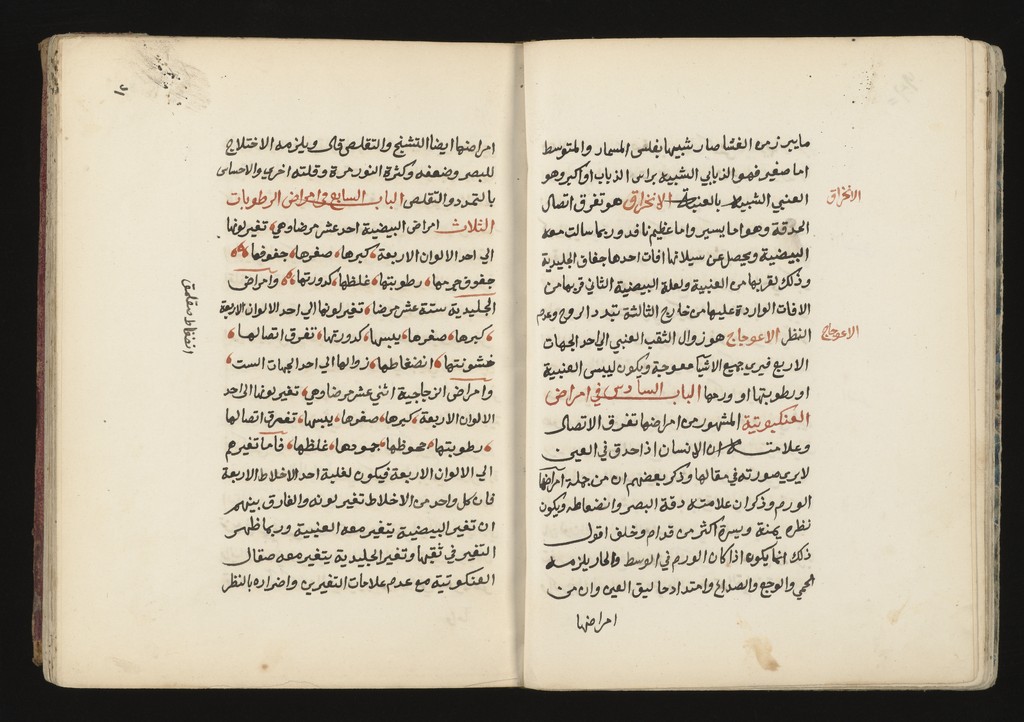 ما يبرز من الغشا صار شبيها بفلس المسمار والمتوسط
اما صغير فهو الذبابي الشبيه براس الذباب او اكبر وهو
العنبي الشبيه بالعنبة الانخراق هو تفرق اتصال
الانخراق
الحدقة وهو اما يسير واما عظيم نافد وربما سالت معه
البيضية ويحصل عن سيلانها افات احدها جفاف الجليدية
وذلك لقربها من العنبية ولعلة البيضية الثاني قربها من
الافات الواردة عليها من خارج الثالثة تبدد الروح وعدم
النظر الاعوجاج هو زوال الثقب العنبي الى احد الجهات
الاعوجاج
الاربع فيرى جميع الاشيا معوجة ويكون ليبس العنبية
او رطوبتها او ورمها الباب السادس في امراض
العنكبوتية المشهور من امراضها تفرق الاتصال
وعلامته ان الانسان اذا حدق في العين
لا يرى صورته في مقالها وذكر بعضهم ان من جملة امراضها
الورم وذكر ان علامته دقة البصر وانضغاطه ويكون
نظره يمنة ويسرة اكثر من قدام وخلف اقول
ذلك انما يكون اذا كان الورم في الوسط والحار يلزمه
الحمى والوجع والصداع وامتداد حماليق العين وان من
امراضها
امراضها ايضا التشنج والتقلص قال ويلزمه الاختلاج
للبصر وضعفه وكثرة النور مرة وقلته اخرى والاحساس
بالتمدد والتقلص الباب السابع في امراض الرطوبات
الثلاث امراض البيضية احد عشر مرضا وهي تغير لونها
الى احد الالوان الاربعة كبرها صغرها جفوفها
جفوف جرمها رطوبتها غلظها كدورتها وامراض
الجليدية ستة عشر مرضا تغير لونها الى احد الالوان الاربعة
كبرها صغرها يبسها كدورتها تفرق اتصالها
خشونتها انضغاطها زوالها الى احد الجهات الست
وامراض الزجاجية اثنى عشر مرضا وهي تغير لونها الى احد
الالوان الاربعة كبرها صغرها يبسها تفرق اتصالها
رطوبتها جحوظها جمودها غلظها فاما تغيرهم
الى الالوان الاربعة فيكون لغلبة احد الاخلاط الاربعة
فان كل واحد من الاخلاط تغير لونه والفارق بينهم
ان تغير البيضية يتغير معه العنبية وربما ظهر
التغير في ثقبها وتغير الجليدية يتغير معه صقال
العنكبوتية مع عدم علامات التغيرين واضراره بالنظر